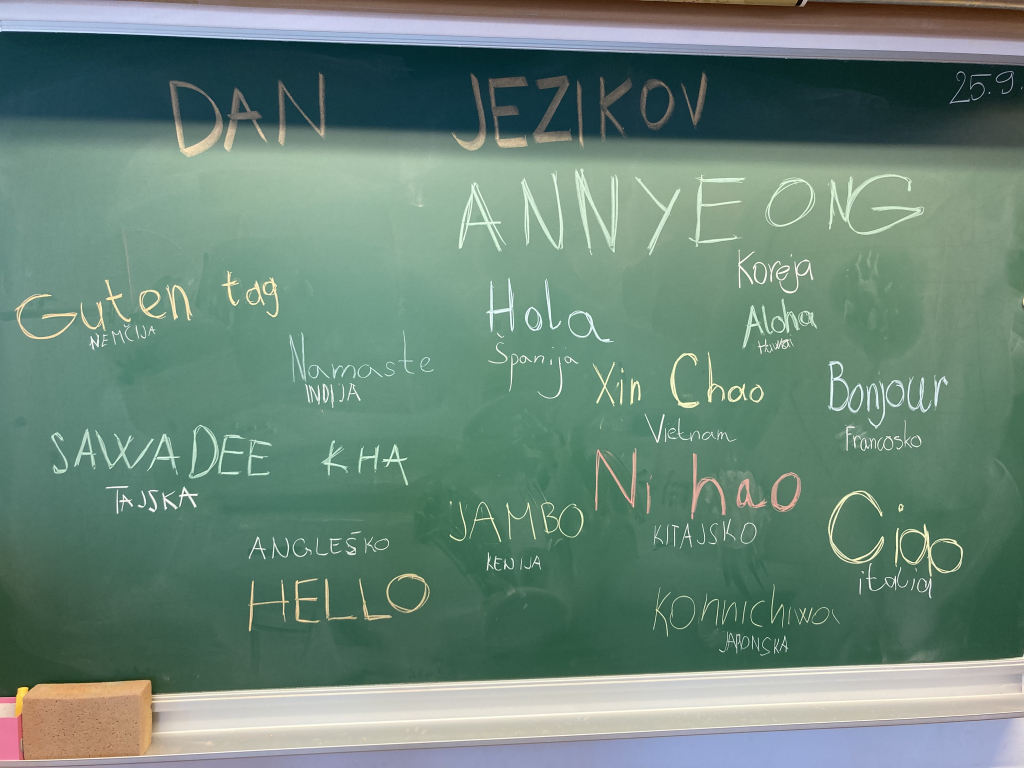 DAN JEZIKOV
25.9.
ANNYEONG
Koreja
Guten tag
NEMČIJA
Hola
Španija
Aloha
Namaste
INDIJA
Xin Chao
Vietnam
Bonjour
Francosko
SAWADEE KHA
TAJSKA
Ni hao
KITAJSKO
JAMBO
KENIJA
Ciao
italia
ANGLEŠKO
HELLO
Konnichiwa
JAPONSKA